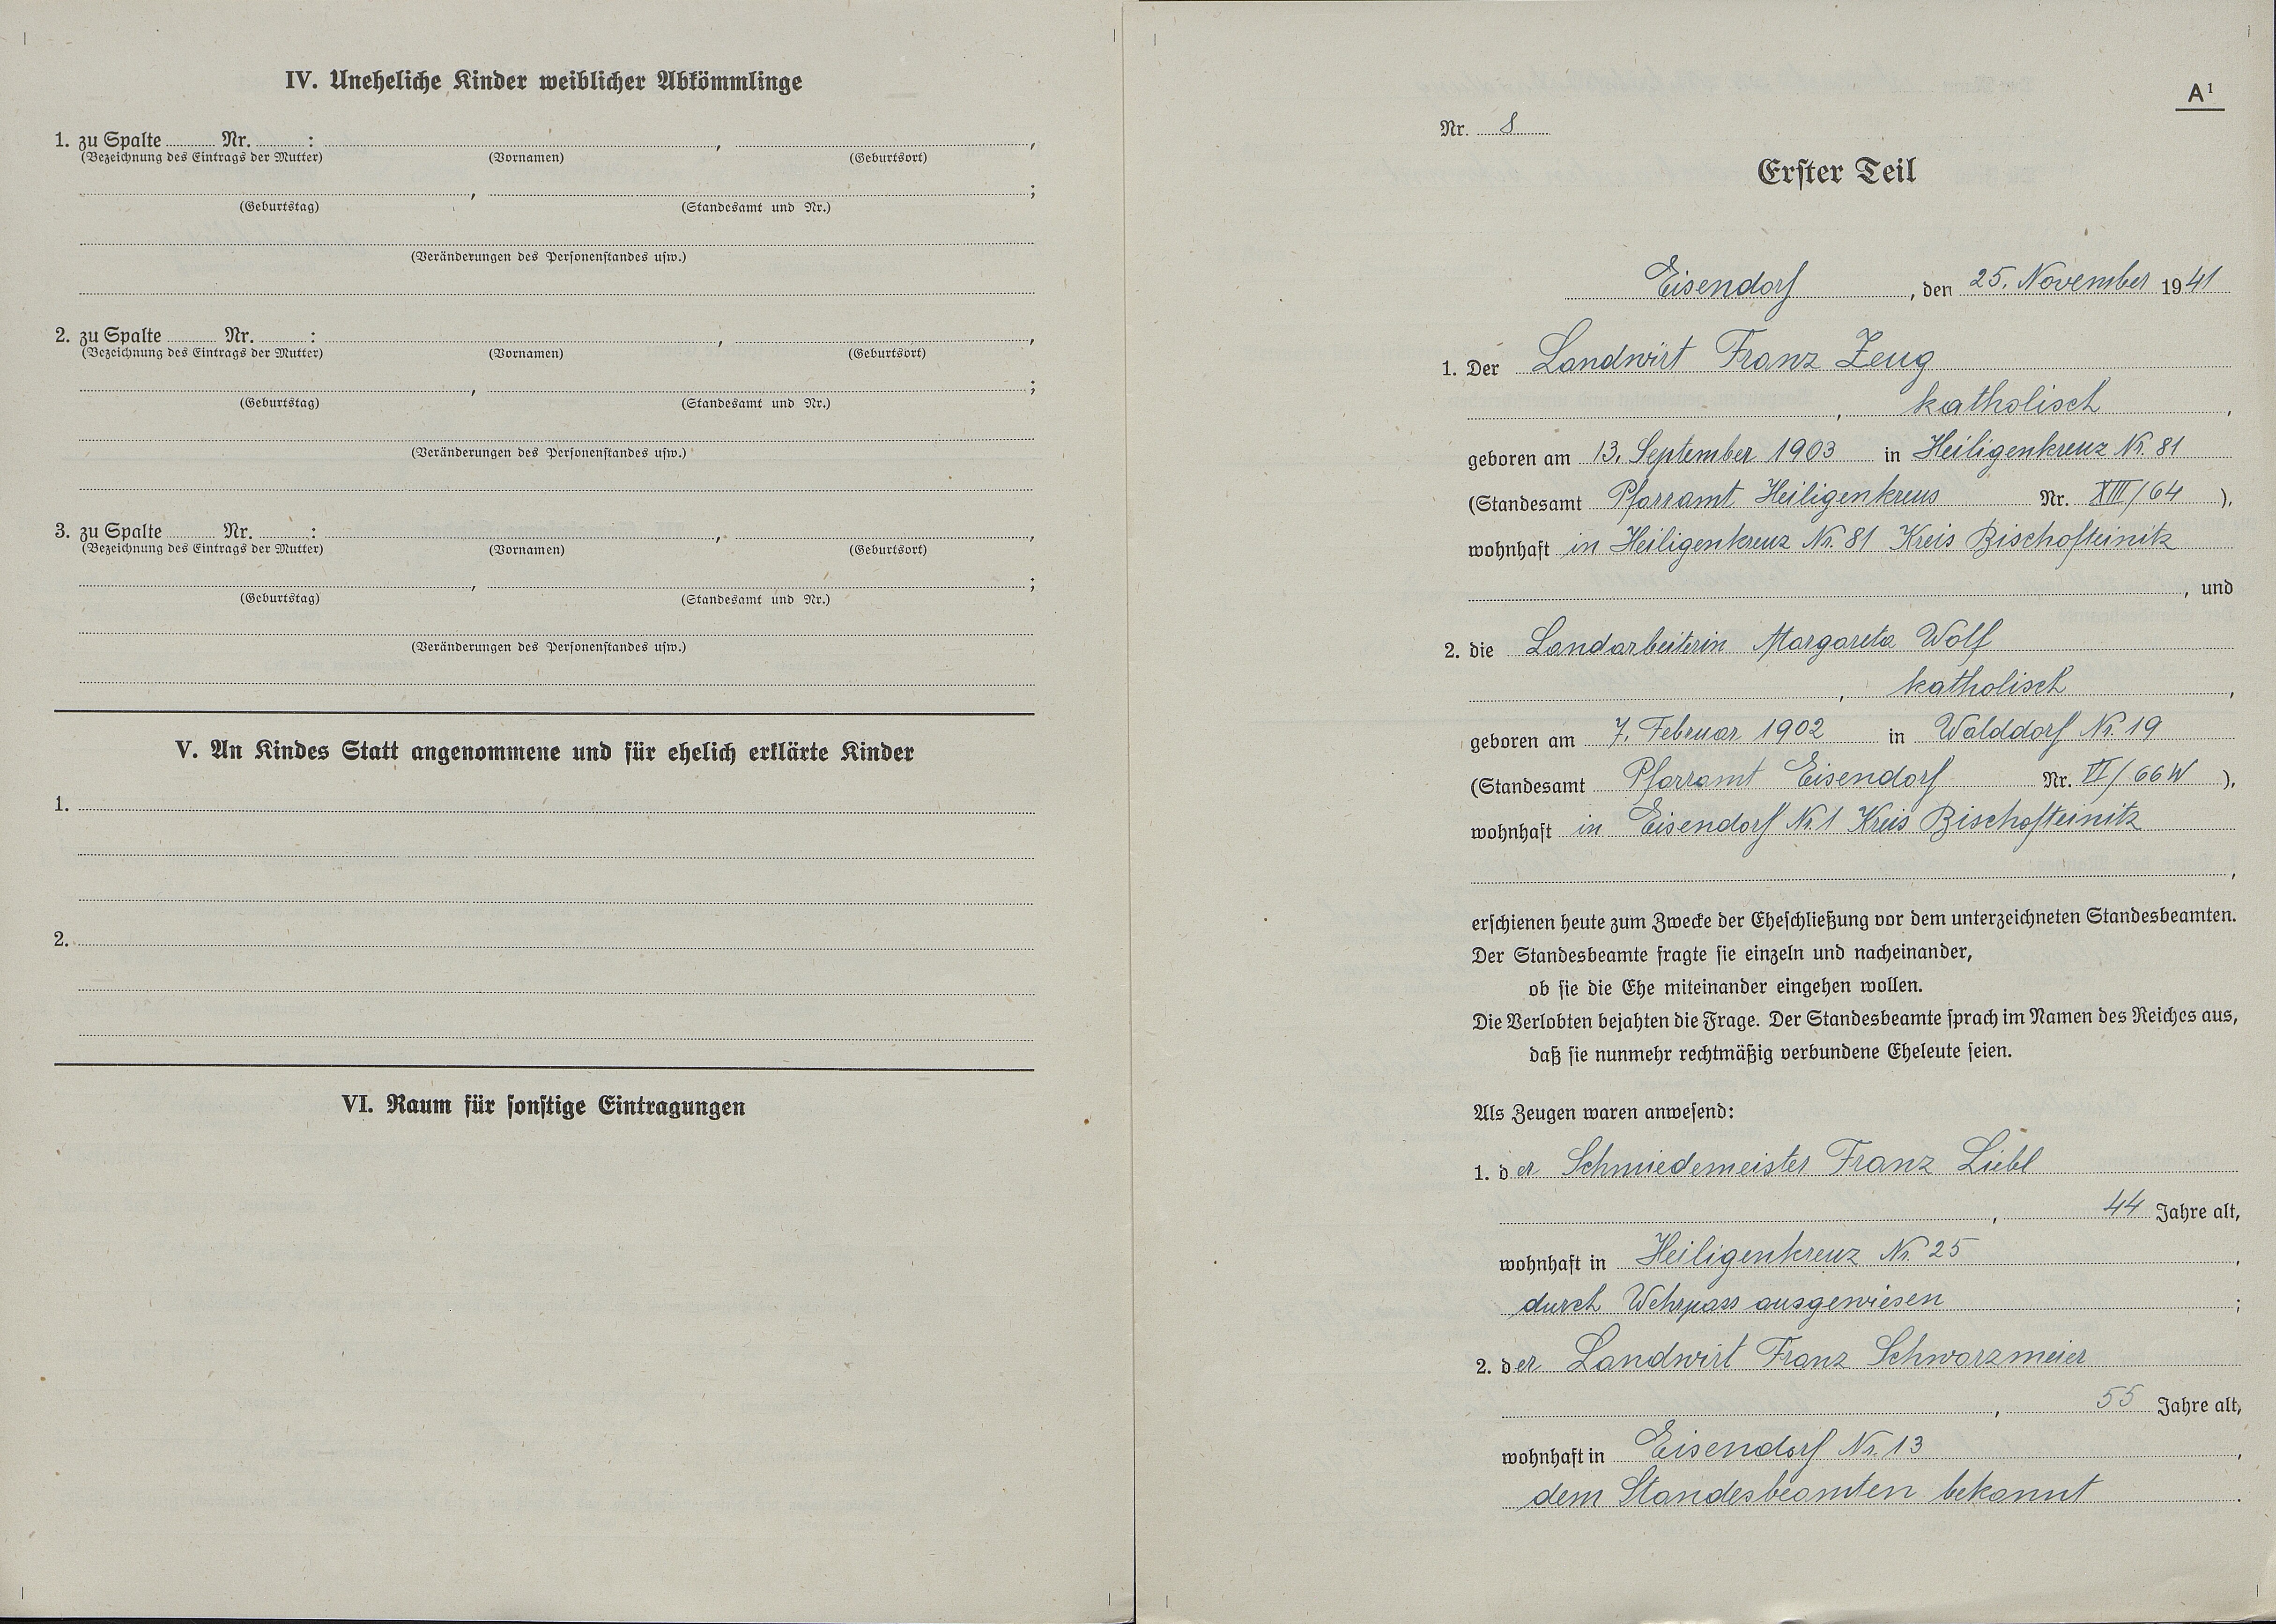 IV. Uneheliche Kinder weiblicher Abkömmlinge
1. zu Spalte ........ Nr. ........ : ........ , ........ ,
(Bezeichnung des Eintrags der Mutter) (Vornamen) (Geburtsort)
........ , ........ ;
(Geburtstag) (Standesamt und Nr.)
(Veränderungen des Personenstandes usw.)
2. zu Spalte ........ Nr. ........ : ........ , ........ ,
(Bezeichnung des Eintrags der Mutter) (Vornamen) (Geburtsort)
........ , ........ ;
(Geburtstag) (Standesamt und Nr.)
(Veränderungen des Personenstandes usw.)
3. zu Spalte ........ Nr. ........ : ........ , ........ ,
(Bezeichnung des Eintrags der Mutter) (Vornamen) (Geburtsort)
........ , ........ ;
(Geburtstag) (Standesamt und Nr.)
(Veränderungen des Personenstandes usw.)
V. An Kindes Statt angenommene und für ehelich erklärte Kinder
1.
2.
VI. Raum für sonstige Eintragungen
A¹
Nr. 8
Erster Teil
Eisendorf, den 25. November 1941
1. Der Landwirt Franz Zeug
, katholisch,
geboren am 13. September 1903 in Heiligenkreuz Nr. 81
(Standesamt Pfarramt Heiligenkreus Nr. XIII/64),
wohnhaft in Heiligenkreuz Nr. 81 Kreis Bischofteinitz
, und
2. die Landarbeiterin Margareta Wolf
, katholisch,
geboren am 7. Februar 1902 in Walddorf Nr. 19
(Standesamt Pfarramt Eisendorf Nr. VI/66W),
wohnhaft in Eisendorf Nr. 1 Kreis Bischofteinitz
,
erschienen heute zum Zwecke der Eheschließung vor dem unterzeichneten Standesbeamten.
Der Standesbeamte fragte sie einzeln und nacheinander,
ob sie die Ehe miteinander eingehen wollen.
Die Verlobten bejahten die Frage. Der Standesbeamte sprach im Namen des Reiches aus,
daß sie nunmehr rechtmäßig verbundene Eheleute seien.
Als Zeugen waren anwesend:
1. der Schmiedemeister Franz Liebl
, 44 Jahre alt,
wohnhaft in Heiligenkreuz Nr. 25,
durch Wehrpass ausgewiesen;
2. der Landwirt Franz Schwarzmeier
, 55 Jahre alt,
wohnhaft in Eisendorf Nr. 13,
dem Standesbeamten bekannt.